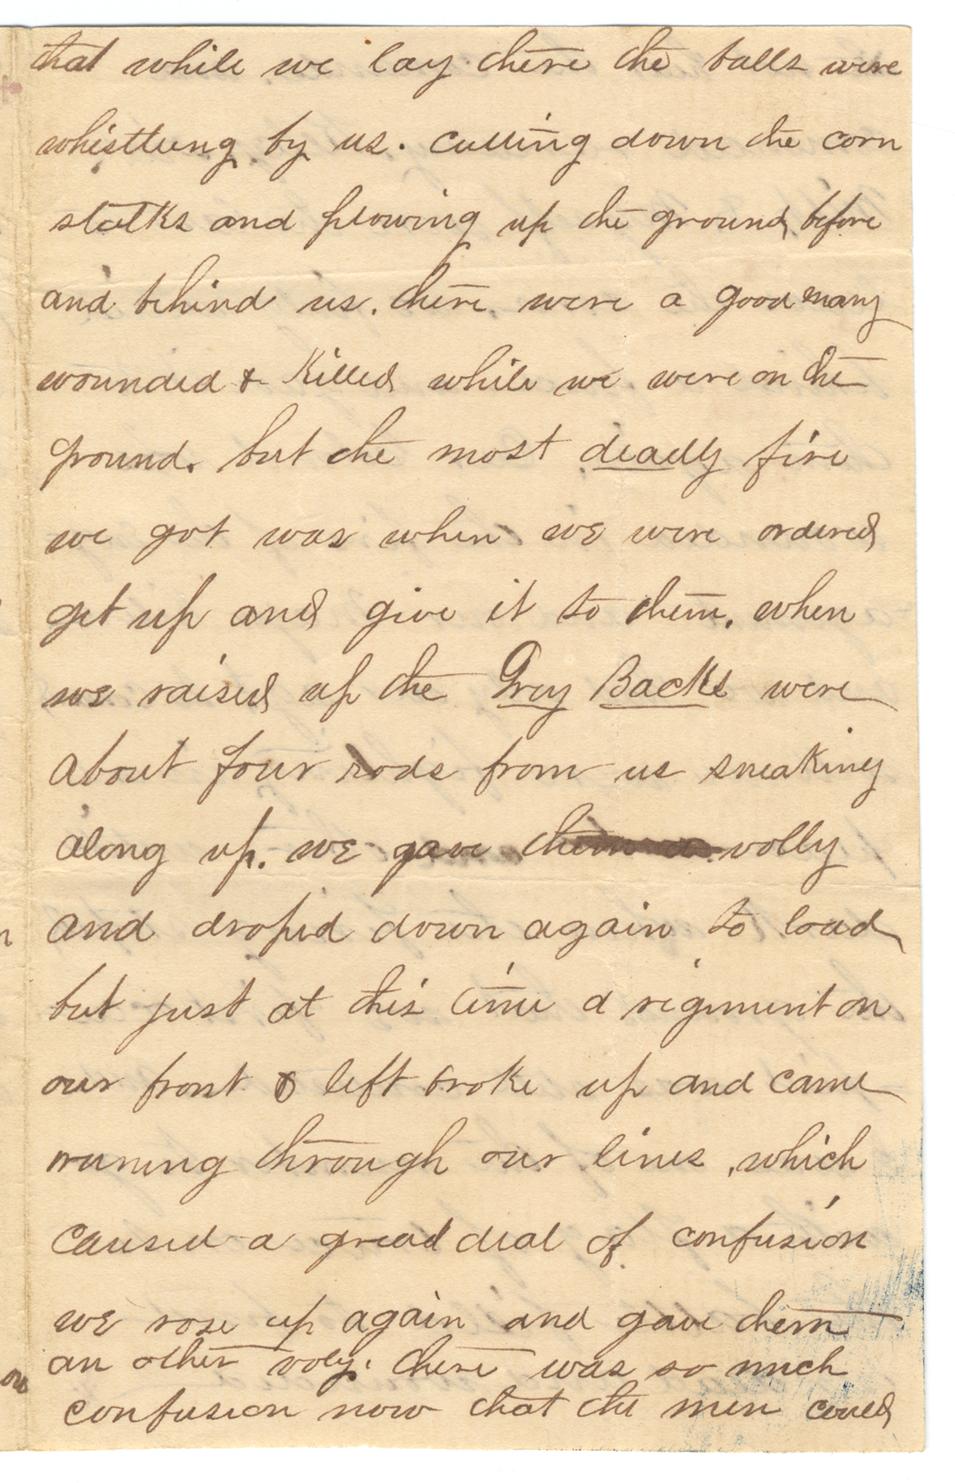 that while we lay there the balls were
whistlung by us. cutting down the corn
stalks and plowing up the ground before
and behind us. there were a good many
wounded & Killed while we were on the
ground. but the most deadly fire
we got was when we were ordered
get up and give it to them. when
we raised up the Gray Backs were
about four rods from us sneaking
along up. we gave them a volly
and droped down again to load
but just at this time a regiment on
our front & left broke up and came
runing through our lines, which
caused a great deal of confusion
we rose up again and gave them
an other voly. there was so much
confusion now that the men could